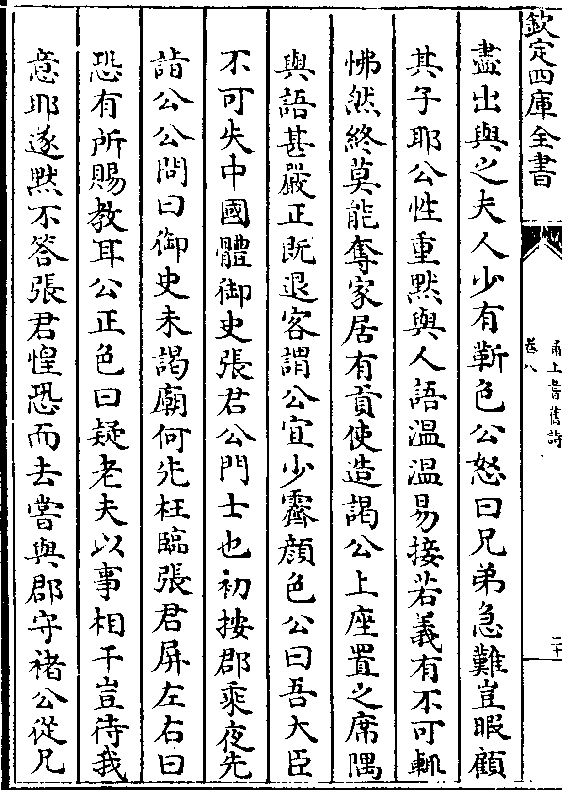 欽定四庫全書
甬上耆舊詩
卷八
二十
盡出與之夫人少有靳色公怒曰兄弟急難豈暇顧
其子耶公性重默與人語溫溫易接若義有不可輒
怫然終莫能奪家居有貢使造謁公上座置之席隅
與語甚嚴正既退客謂公宜少霽顔色公曰吾大臣
不可失中國體御史張君公門士也初按郡乘夜先
詣公公問曰御史未謁廟何先枉臨張君屏左右曰
恐有所賜教耳公正色曰疑老夫以事相干豈待我
意耶遂默不答張君惶恐而去嘗與郡守褚公從兄